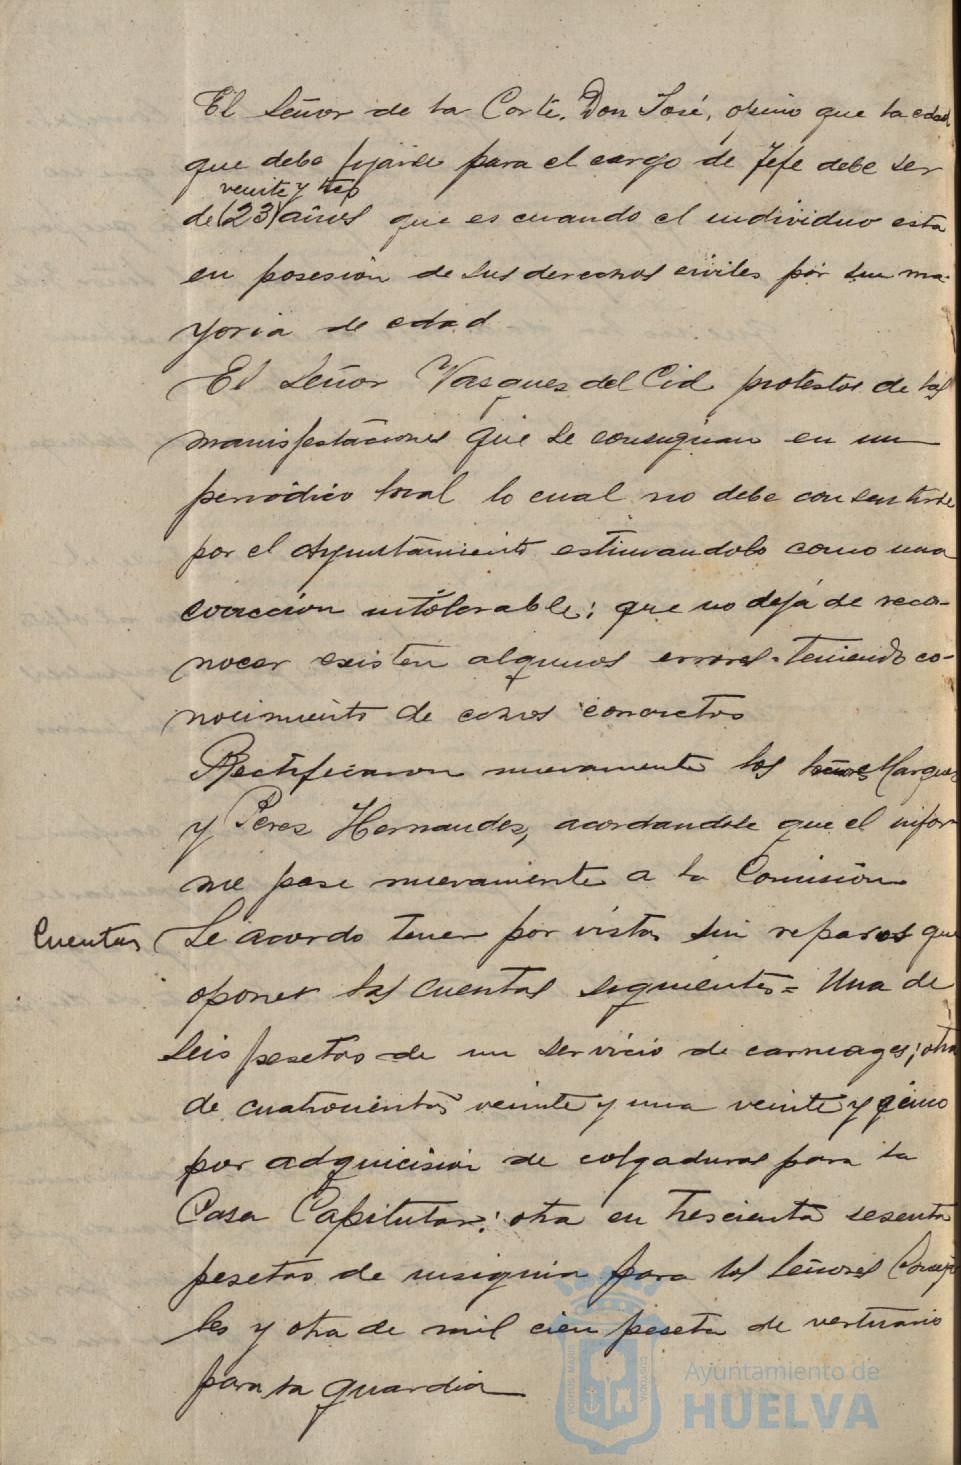 El Señor de la Corte, Don José, opino que la edad
que debe fijarse para el cargo de Jefe debe ser
veinte y tres
de (23) años que es cuando el individuo esta
en posesión de sus derechos civiles por su ma-
yoria de edad
El Señor Vasques del Cid protestos de las
manisfestaciones que se consignan en un
periodico local lo cual no debe consentirse
por el Ayuntamiento estimandolo como una
coaccion intolerable; que no deja de reco-
nocer existen algunos errores teniendo co-
nocimiento de concretos
Rectificaron nuevamente los Señores Marques
y Peres Hernandes, acordandose que el infor-
me pase nuevamente a la Comisión
Cuentas Se acordo tener por vistas sin reparos que
oponer las cuentas siguientes = Una de
seis pesetas de un servicio de carruages; otra
de cuatrocientas veinte y una veinte y cinco
por adquicision de colgaduras para la
Casa Capitular; otra en trescienta sesenta
pesetas de insignia para los Señores Conceja
les y otra de mil cien peseta de vestuario
para la guardia
Ayuntamiento de
HUELVA